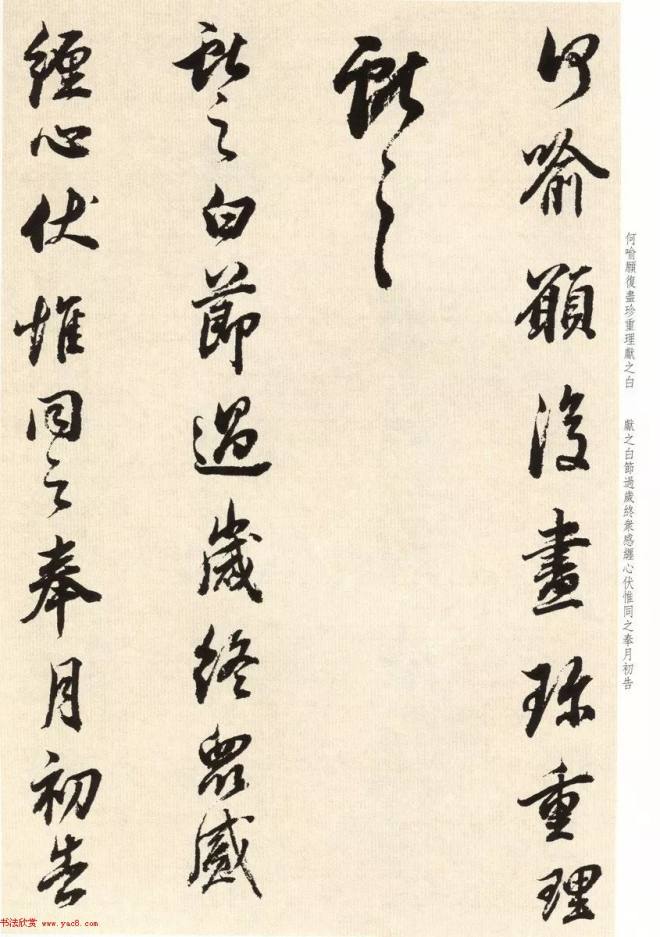 何喻願復盡珍重理
獻之
獻之白節過歲終眾感
纏心伏惟同之奉月初告
何喻願復盡珍重理獻之白　獻之白節過歲終衆感纏心伏惟同之奉月初告
书法欣赏 www.yac8.com